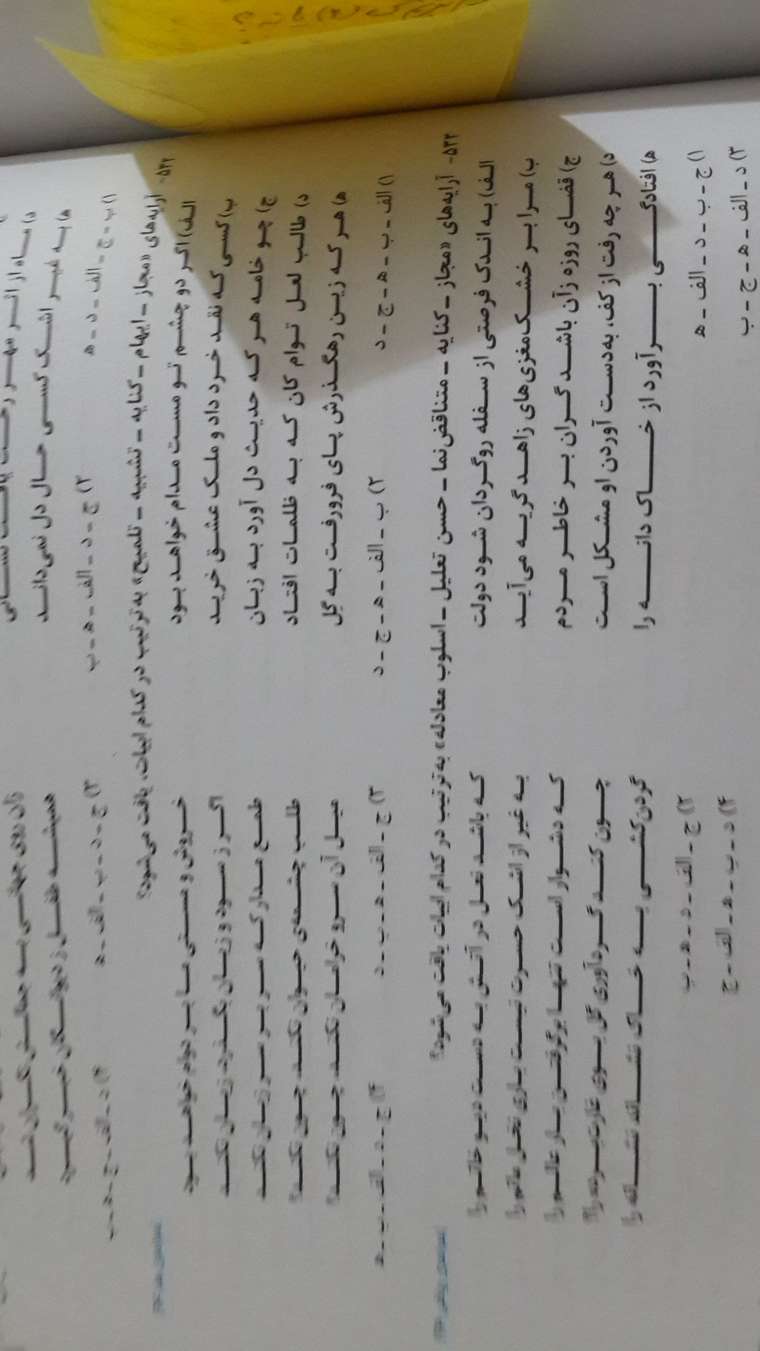 د) ماه از اثر مهر رخت یافت نشانی
زان روی جهانی به جمالش نگرانند
ه) به غیر اشک کسی حال دل نمی‌داند
همیشه طفل ز دیوانگان خبر گیرد
۱) ب - ج - الف - د - ه
۲) ج - د - الف - ه - ب
۳) ج - د - ب - الف - ه
۴) د - الف - ج - ه - ب
۵۳۳- آرایه‌های «مجاز - ایهام - کنایه - تشبیه - تلمیح» به ترتیب در کدام ابیات، یافت می‌شود؟
الف) اگر دو چشم تو مست مدام خواهد بود
خروش و مستی ما بر دوام خواهد بود
ب) کسی که نقد خرد داد و ملک عشق خرید
اگر ز سود و زیان بگذرد، زیان نکند
ج) چو خامه هر که حدیث دل آورد به زبان
طمع مدار که سر بر سر زبان نکند
د) طالب لعل توام کان که به ظلمات افتاد
طلب چشمه‌ی حیوان نکند، چون نکند؟
ه) هر که زین رهگذرش پای فرورفت به گل
میل آن سرو خرامان نکند، چون نکند؟
۱) الف - ب - ه - ج - د
۲) ب - الف - ه - ج - د
۳) ج - الف - ه - ب - د
۴) ج - د - الف - ب - ه
۵۳۴- آرایه‌های «مجاز - کنایه - متناقض‌نما - حسن تعلیل - اسلوب معادله» به ترتیب در کدام ابیات یافت می‌شود؟
الف) به اندک فرصتی از سفله روگردان شود دولت
که باشد نعل در آتش به دست دیو خاتم را
ب) مرا بر خشک‌مغزی‌های زاهد گریه می‌آید
به غیر از اشک حسرت نیست باری نخل ماتم را
ج) قضای روزه زآن باشد گران بر خاطر مردم
که دشوار است تنها برگرفتن بار عالم را
د) هر چه رفت از کف، به‌دست آوردن او مشکل است
چون کند گردآوری گل بوی غارت‌برده را؟
ه) افتادگی برآورد از خاک دانه را
گردن‌کشی به خاک نشاند نشانه را
۱) ج - ب - د - الف - ه
۲) ج - الف - د - ه - ب
۳) د - الف - ه - ج - ب
۴) د - ب - ه - الف - ج